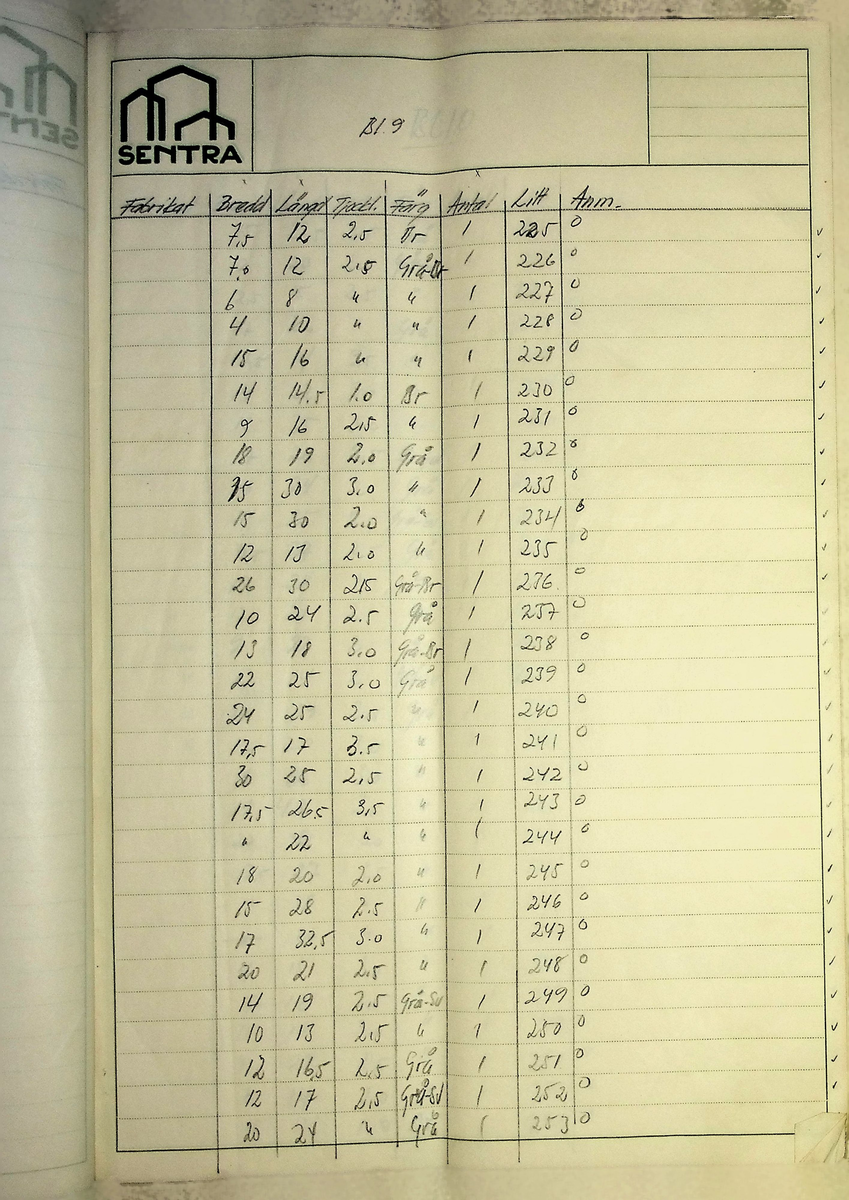 SENTRA
Bl. 9
Fabrikat Bredd Längd Tjockl. Färg Antal Litt Anm.
7,5 12 2,5 Br 1 225 0
7,0 12 2,5 Grå-Br 1 226 0
6 8 " " 1 227 0
4 10 " " 1 228 0
15 16 " " 1 229 0
14 14,5 1.0 Br 1 230 0
9 16 2,5 " 1 231 0
18 19 2,0 Grå 1 232 0
15 30 3.0 " 1 233 0
15 30 2.0 " 1 234 0
12 13 2.0 " 1 235 0
26 30 2,5 Grå-Br 1 236 0
10 24 2.5 Grå 1 237 0
13 18 3.0 Grå-Br 1 238 0
22 25 3.0 Grå 1 239 0
24 25 2.5 " 1 240 0
17,5 17 3.5 " 1 241 0
30 25 2,5 " 1 242 0
17,5 26,5 3,5 " 1 243 0
" 22 " " 1 244 0
18 20 2,0 " 1 245 0
15 28 2.5 " 1 246 0
17 32,5 3.0 " 1 247 0
20 21 2,5 " 1 248 0
14 19 2,5 Grå-Sv 1 249 0
10 13 2,5 " 1 250 0
12 16,5 2,5 Grå 1 251 0
12 17 2,5 Grå-Sv 1 252 0
20 24 " Grå 1 253 0